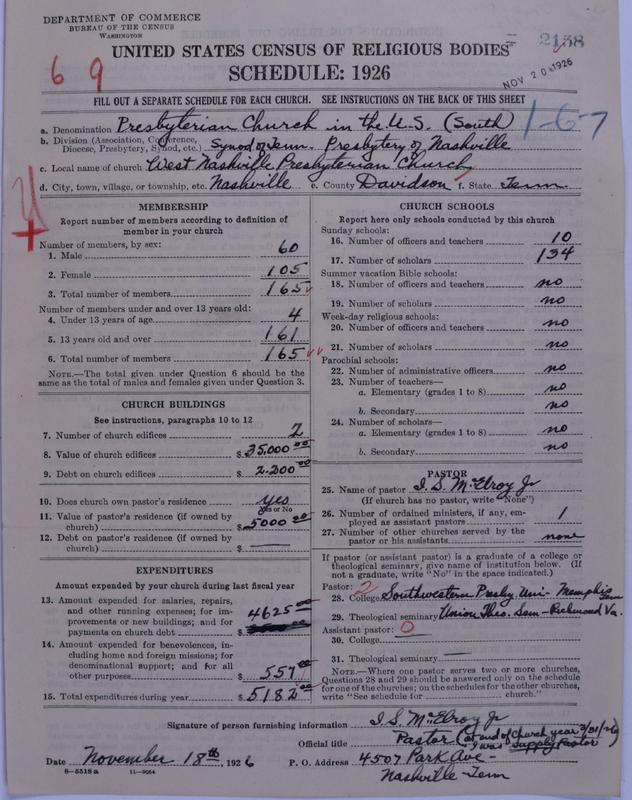 DEPARTMENT OF COMMERCE
BUREAU OF THE CENSUS
WASHINGTON
UNITED STATES CENSUS OF RELIGIOUS BODIES
2158
SCHEDULE: 1926
NOV 20 1926
6 9
FILL OUT A SEPARATE SCHEDULE FOR EACH CHURCH. SEE INSTRUCTIONS ON THE BACK OF THIS SHEET
1-67
a. Denomination Presbyterian Church in the U.S. (South)
b. Division (Association, Conference, Diocese, Presbytery, Synod, etc.) Synod of Tenn. Presbytery of Nashville
c. Local name of church West Nashville Presbyterian Church
d. City, town, village, or township, etc. Nashville e. County Davidson f. State Tenn.
MEMBERSHIP
Report number of members according to definition of
member in your church
Number of members, by sex:
1. Male 60
2. Female 105
3. Total number of members 165
Number of members under and over 13 years old:
4. Under 13 years of age 4
5. 13 years old and over 161
6. Total number of members 165
NOTE.—The total given under Question 6 should be
same as the total of males and females given under Question 3.
CHURCH BUILDINGS
See instructions, paragraphs 10 to 12
7. Number of church edifices 2
8. Value of church edifices $ 35.000 00
9. Debt on church edifices $ 2.200 00
10. Does church own pastor's residence yes
Yes or No
11. Value of pastor's residence (if owned by
church) $ 5000 00
12. Debt on pastor's residence (if owned by
church) $ —
EXPENDITURES
Amount expended by your church during last fiscal year
13. Amount expended for salaries, repairs,
and other running expenses; for im-
provements or new buildings; and for
payments on church debt $ 4625 00
14. Amount expended for benevolences, in-
cluding home and foreign missions; for
denominational support; and for all
other purposes $ 557 00
15. Total expenditures during year $ 5182 00
CHURCH SCHOOLS
Report here only schools conducted by this church
Sunday schools:
16. Number of officers and teachers 10
17. Number of scholars 134
Summer vacation Bible schools:
18. Number of officers and teachers no
19. Number of scholars no
Week-day religious schools:
20. Number of officers and teachers no
21. Number of scholars no
Parochial schools:
22. Number of administrative officers no
23. Number of teachers—
a. Elementary (grades 1 to 8) no
b. Secondary no
24. Number of scholars—
a. Elementary (grades 1 to 8) no
b. Secondary no
PASTOR
25. Name of pastor I. S. McElroy Jr
(If church has no pastor, write "None")
26. Number of ordained ministers, if any, em-
ployed as assistant pastors 1
27. Number of other churches served by the
pastor or his assistants none
If pastor (or assistant pastor) is a graduate of a college or
theological seminary, give name of institution below. (If
not a graduate, write "No" in the space indicated.)
Pastor: 2
28. College Southwestern Presby. Uni- Memphis Tenn
29. Theological seminary Union Theo. Sem- Richmond Va.
Assistant pastor: 0
30. College —
31. Theological seminary —
NOTE.—Where one pastor serves two or more churches,
Questions 28 and 29 should be answered only on the schedule
for one of the churches; on the schedules for the other churches,
write "See schedule for church."
Signature of person furnishing information I. S. McElroy Jr
Official title Pastor (at end of church year 3/31/26
I was supply Pastor)
Date November 18th, 1926 P. O. Address 4507 Park Ave-
8-5518a 11-9264 Nashville-Tenn